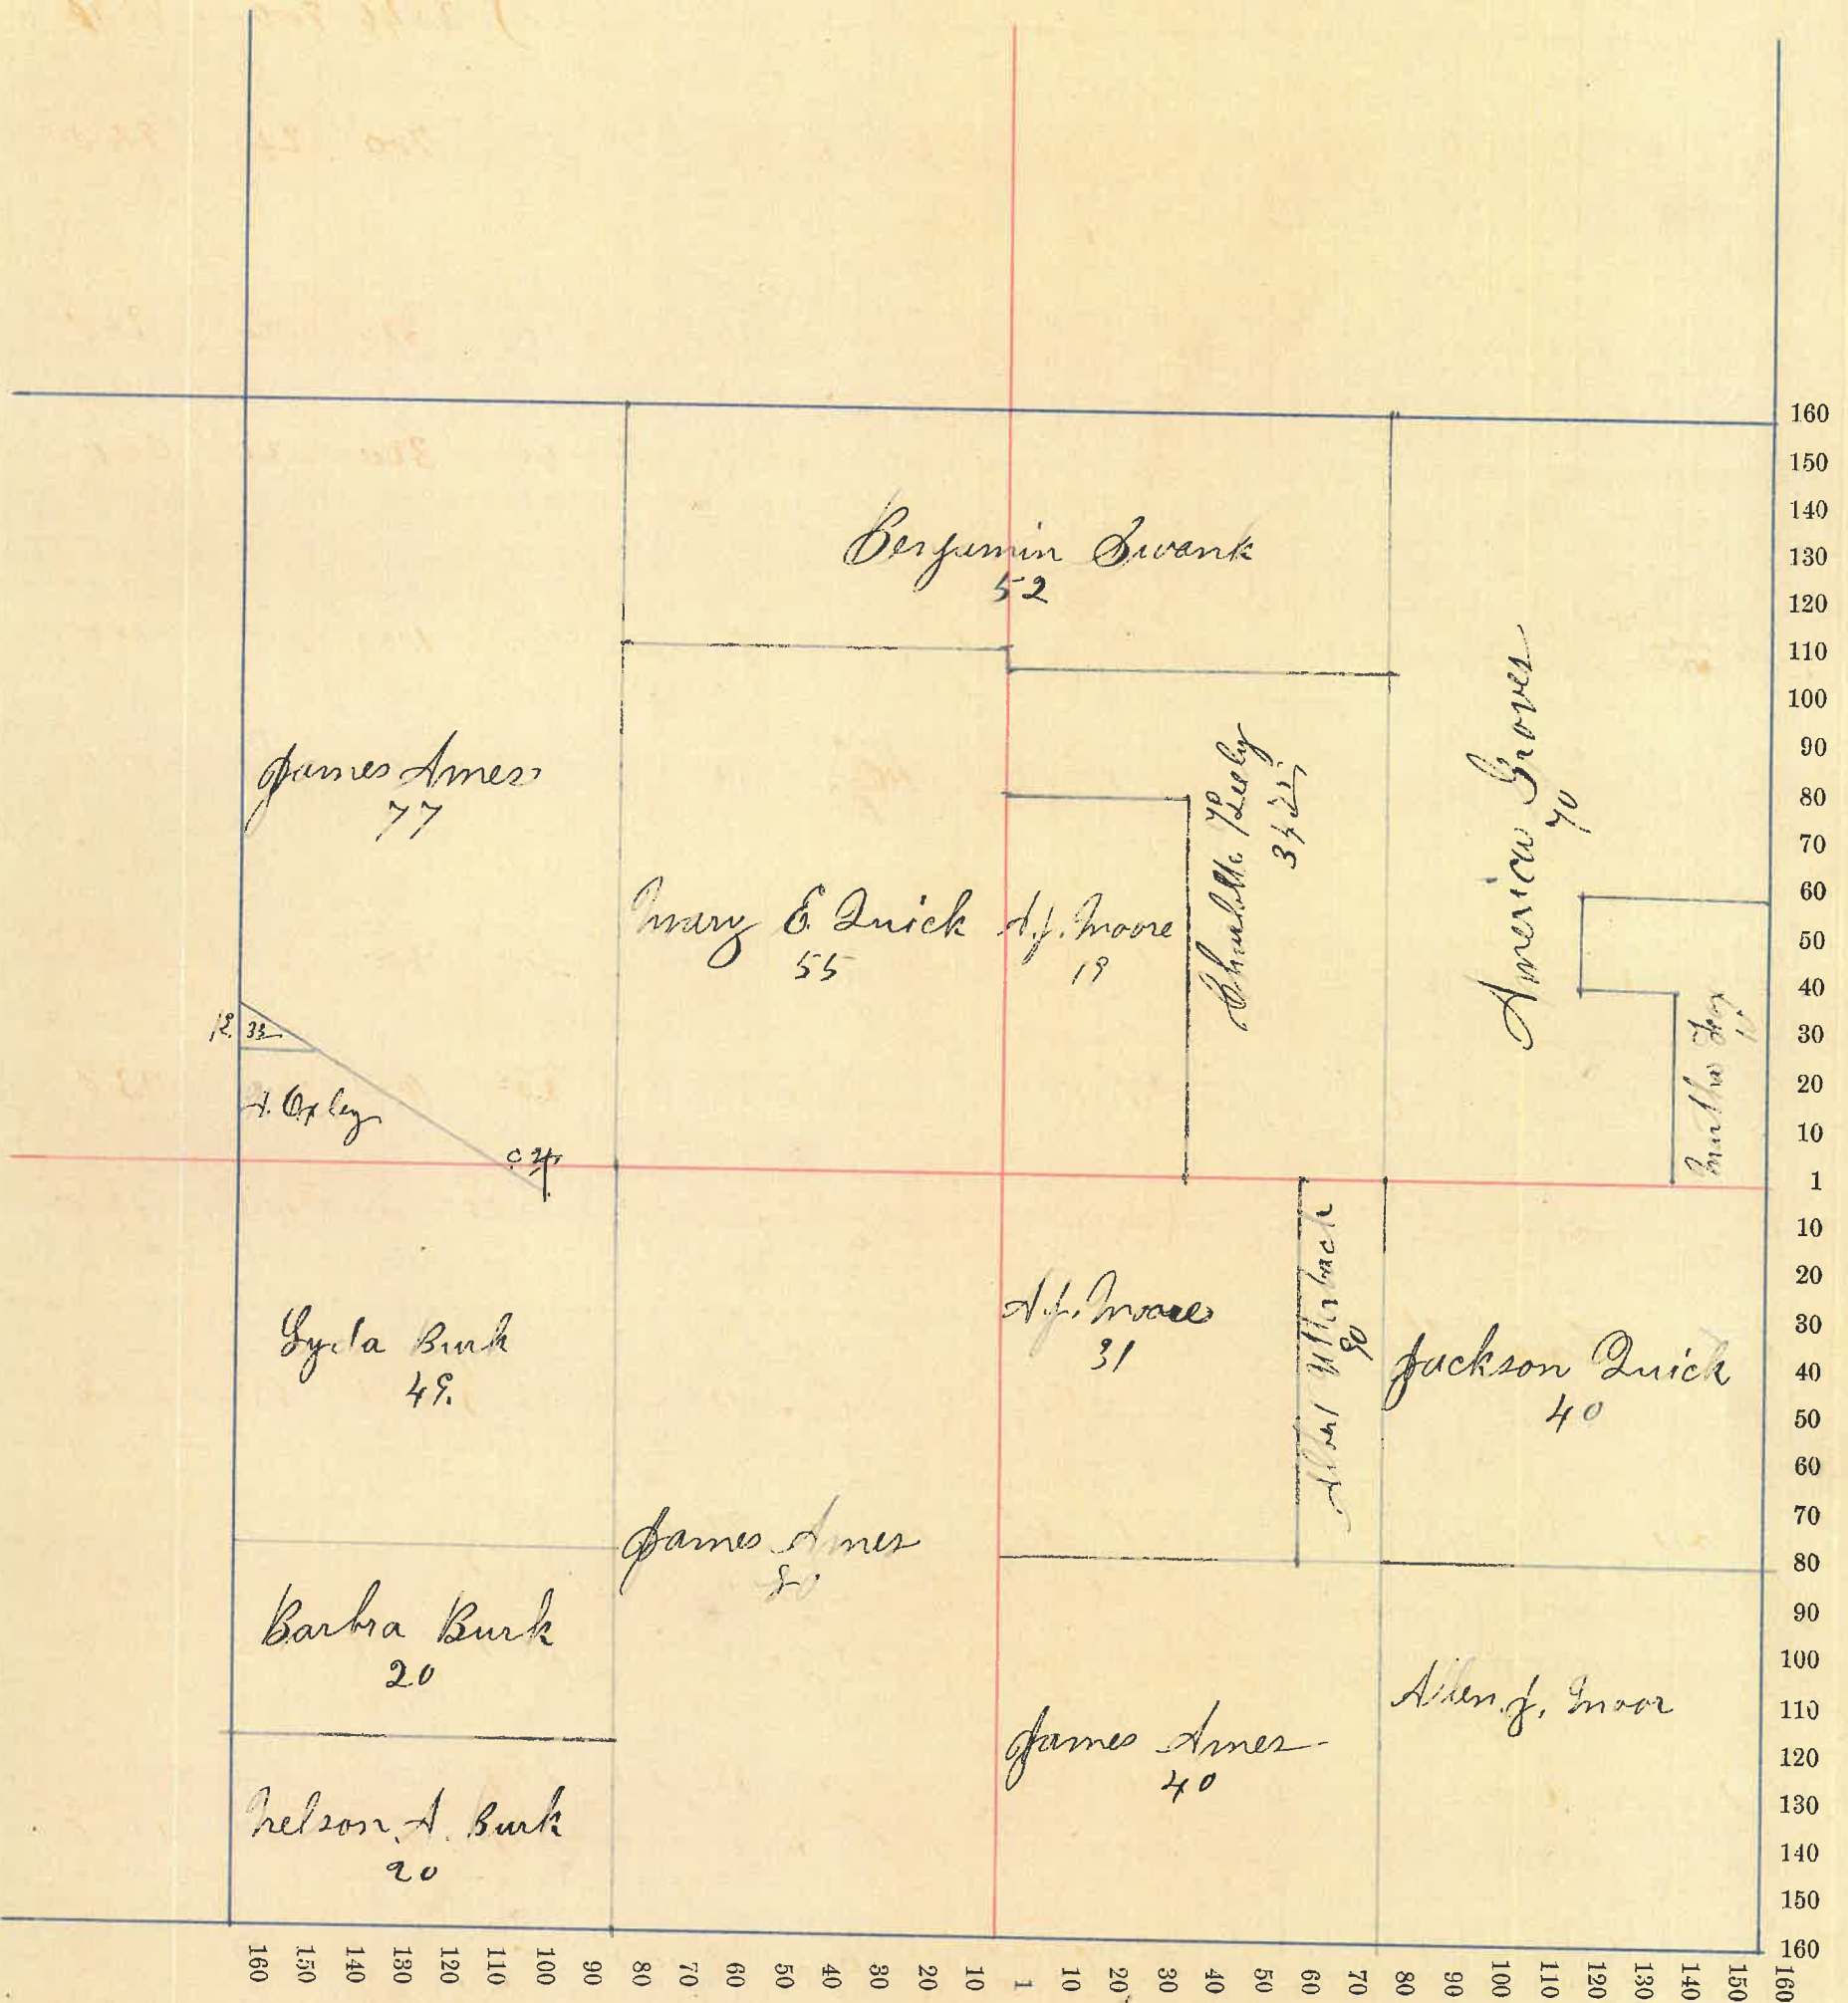 Benjamin Swank
52
James Ames
77
Mary E. Quick
55
A. J. Moore
19
35
America Groves
70
Martha
33
A. Oxley
Lyda Burk
49.
A. J. Moore
31
Albert Utterback
Jackson Quick
40
James Ames
80
Barbra Burk
20
Nelson A. Burk
20
James Ames
40
Allen J. Moor
160
150
140
130
120
110
100
90
80
70
60
50
40
30
20
10
1
10
20
30
40
50
60
70
80
90
100
110
120
130
140
150
160
160 150 140 130 120 110 100 90 80 70 60 50 40 30 20 10 1 10 20 30 40 50 60 70 80 90 100 110 120 130 140 150 160